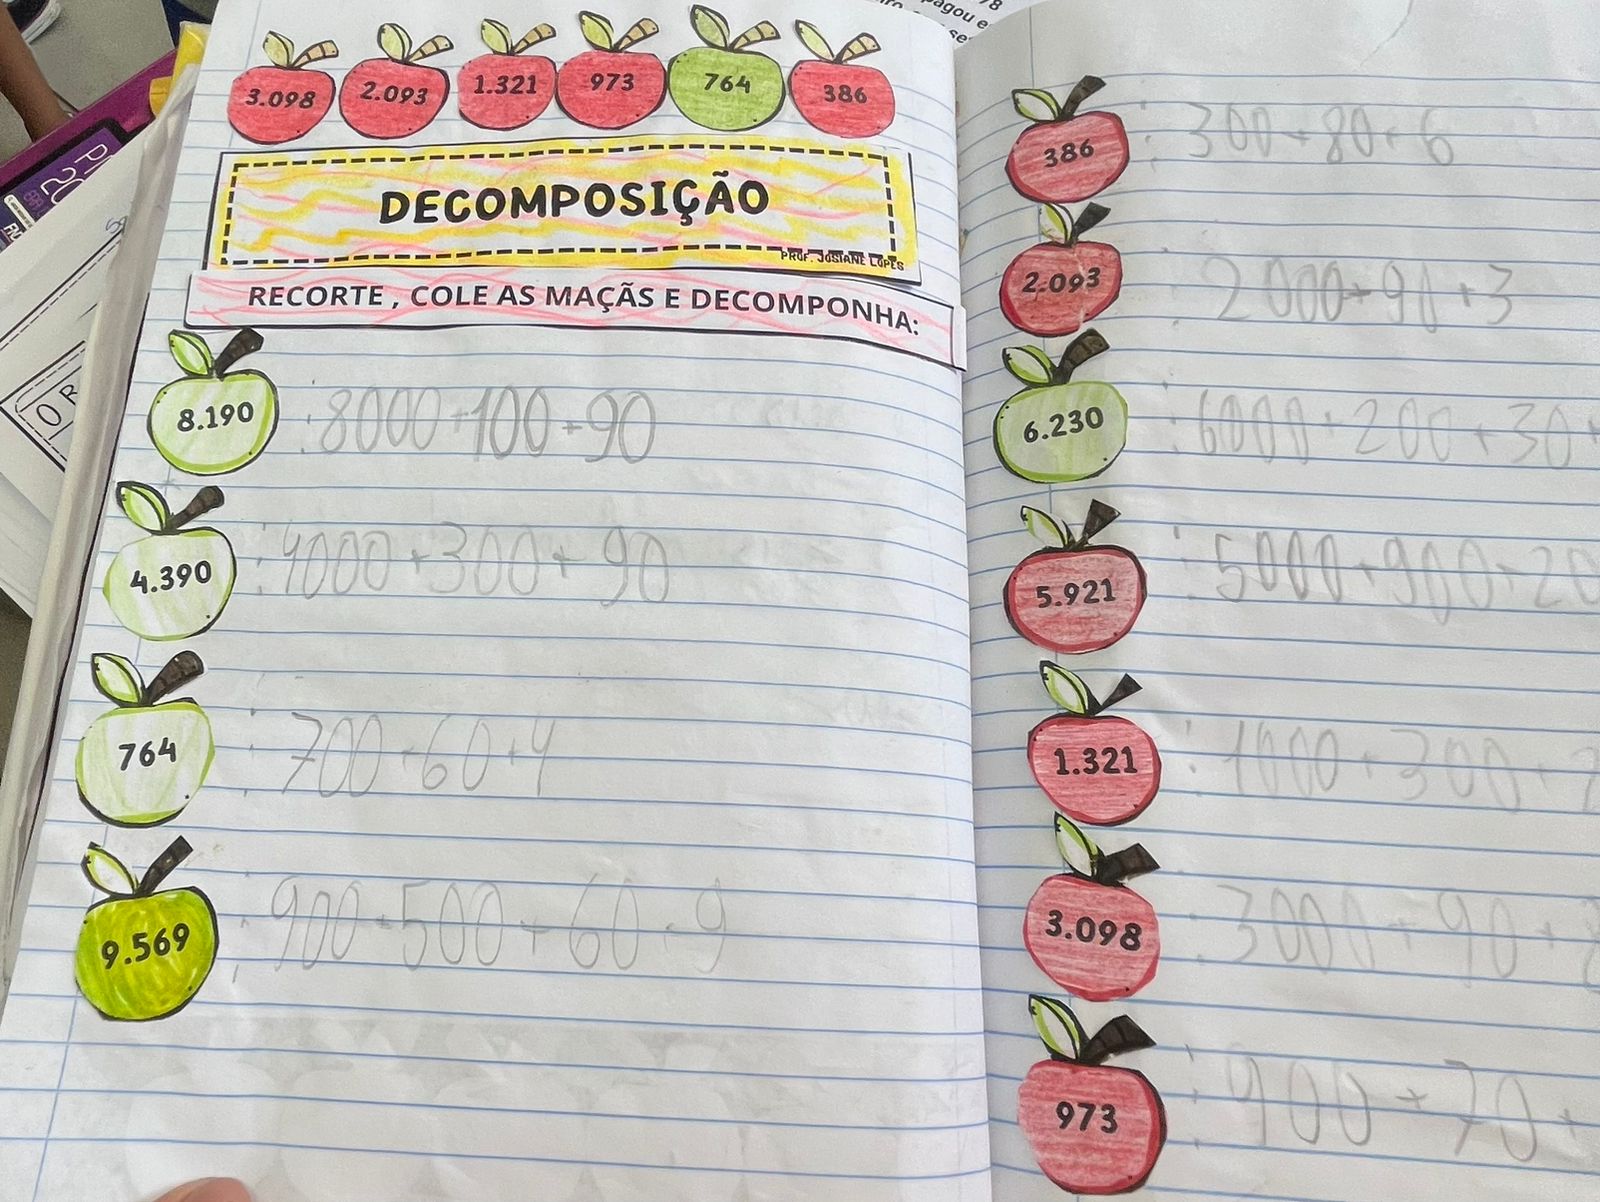 3.098 2.093 1.321 973 764 386
DECOMPOSIÇÃO
PROF. JOSIANE LOPES
RECORTE, COLE AS MAÇÃS E DECOMPONHA:
8.190 : 8000+100+90
4.390 : 4000+300+90
764 : 700+60+4
9.569 : 900+500+60+9
pagou e
386 : 300+80+6
2.093 2000+90+3
6.230 : 6000+200+30+
5.921 : 5000+900+20
1.321 : 1000+300+2
3.098 : 3000+90+8
973 : 900+70+